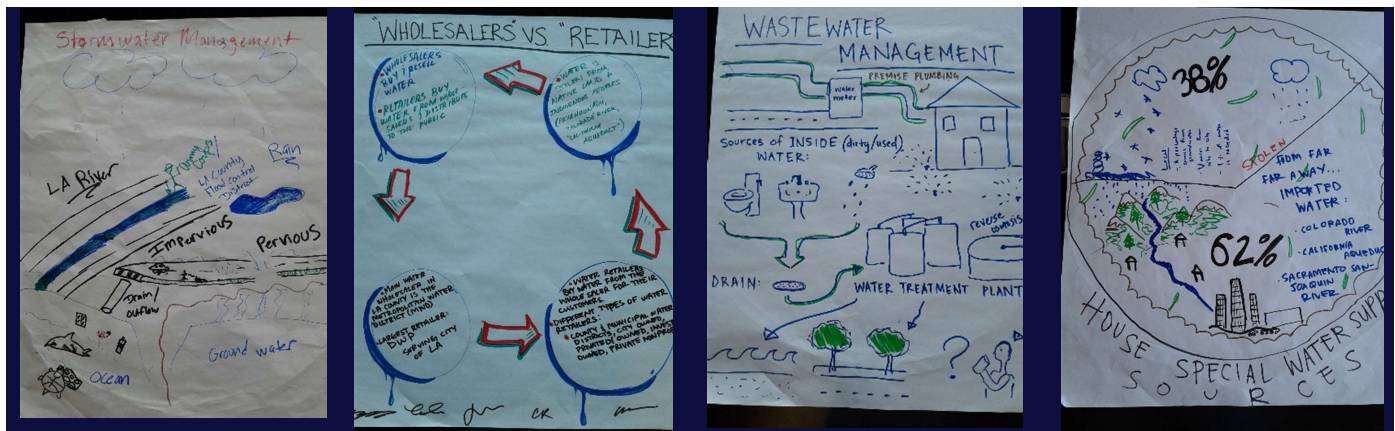 Stormwater Management
LA River
LA County
Flood Control
District
Rain
Impervious
Pervious
Drain/
outflow
Ground water
Ocean
"WHOLESALERS" VS. "RETAILER
• WHOLESALERS
BUY & RESELL
WATER
• RETAILERS BUY
WATER FROM WHOLE
SALERS & DISTRIBUTE
TO THE PUBLIC
• WATER IS
STOLEN FROM
NATIVE LANDS &
INDIGENOUS PEOPLES
• MAIN WATER
WHOLESALER IN
LA COUNTY IS THE
METROPOLITAN WATER
DISTRICT (MWD)
• LARGEST RETAILER:
DWP
SERVING CITY
OF LA
• WATER RETAILERS
BUY WATER FROM THE
WHOLESALER FOR THEIR
CUSTOMERS.
• DIFFERENT TYPES OF WATER
RETAILERS:
• COUNTY & MUNICIPAL WATER
DISTRICTS, CITY OWNED,
OWNED, PRIVATE NONPROF
CR
WASTEWATER
MANAGEMENT
PREMISE PLUMBING
water
meter
Sources of INSIDE (dirty/used)
WATER:
reverse
osmosis
DRAIN:
WATER TREATMENT PLANT
?
38%
STOLEN
FROM FAR
FAR AWAY...
IMPORTED
WATER:
• COLORADO
RIVER
• CALIFORNIA
AQUEDUC
• SACRAMENTO SAN-
JOAQUIN
RIVER
62%
HOUSE SPECIAL WATER SUPP
SOURCES